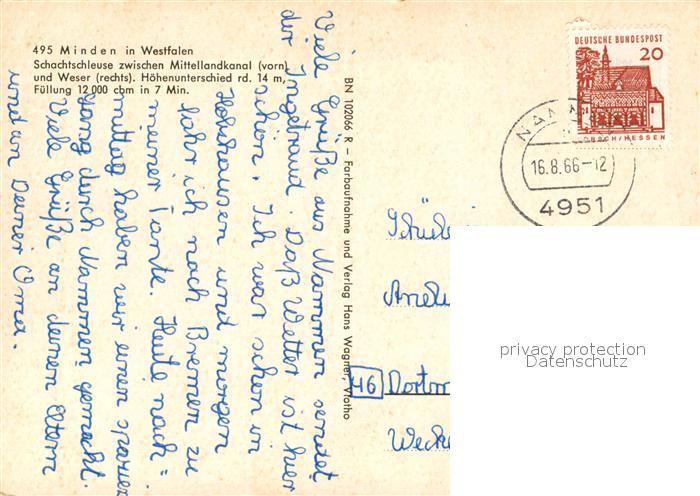 495 Minden in Westfalen
Schachtschleuse zwischen Mittellandkanal (vorn)
und Weser (rechts). Höhenunterschied rd. 14 m,
Füllung 12 000 cbm in 7 Min.
BN 102066 R – Farbaufnahme und Verlag Hans Wagner, Vlotho
DEUTSCHE BUNDESPOST
20
LORSCH/HESSEN
16.8.66-12
4951
Viele Grüße aus Nammen sendet
dir Ingetraud. Daß Wetter ist hier
schön. Ich war schon in
Holzhausen und morgen
fahr ich nach Bremen zu
meiner Tante. Heute nach=
mittag haben wir einen spazier
gang durch Nammen gemacht.
Viele Grüße an deinen Eltern
und an Deiner Oma.
46 Dortm
privacy protection
Datenschutz